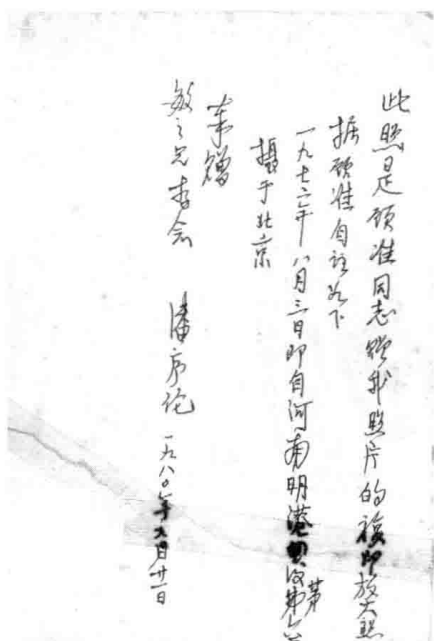 此照是顾准同志赠我照片的複印放大照
据顾准自註如下
一九七二年八月三日即自河南明港
摄于北京
奉赠
敏之兄存念
潘序伦 一九八〇年九月廿一日